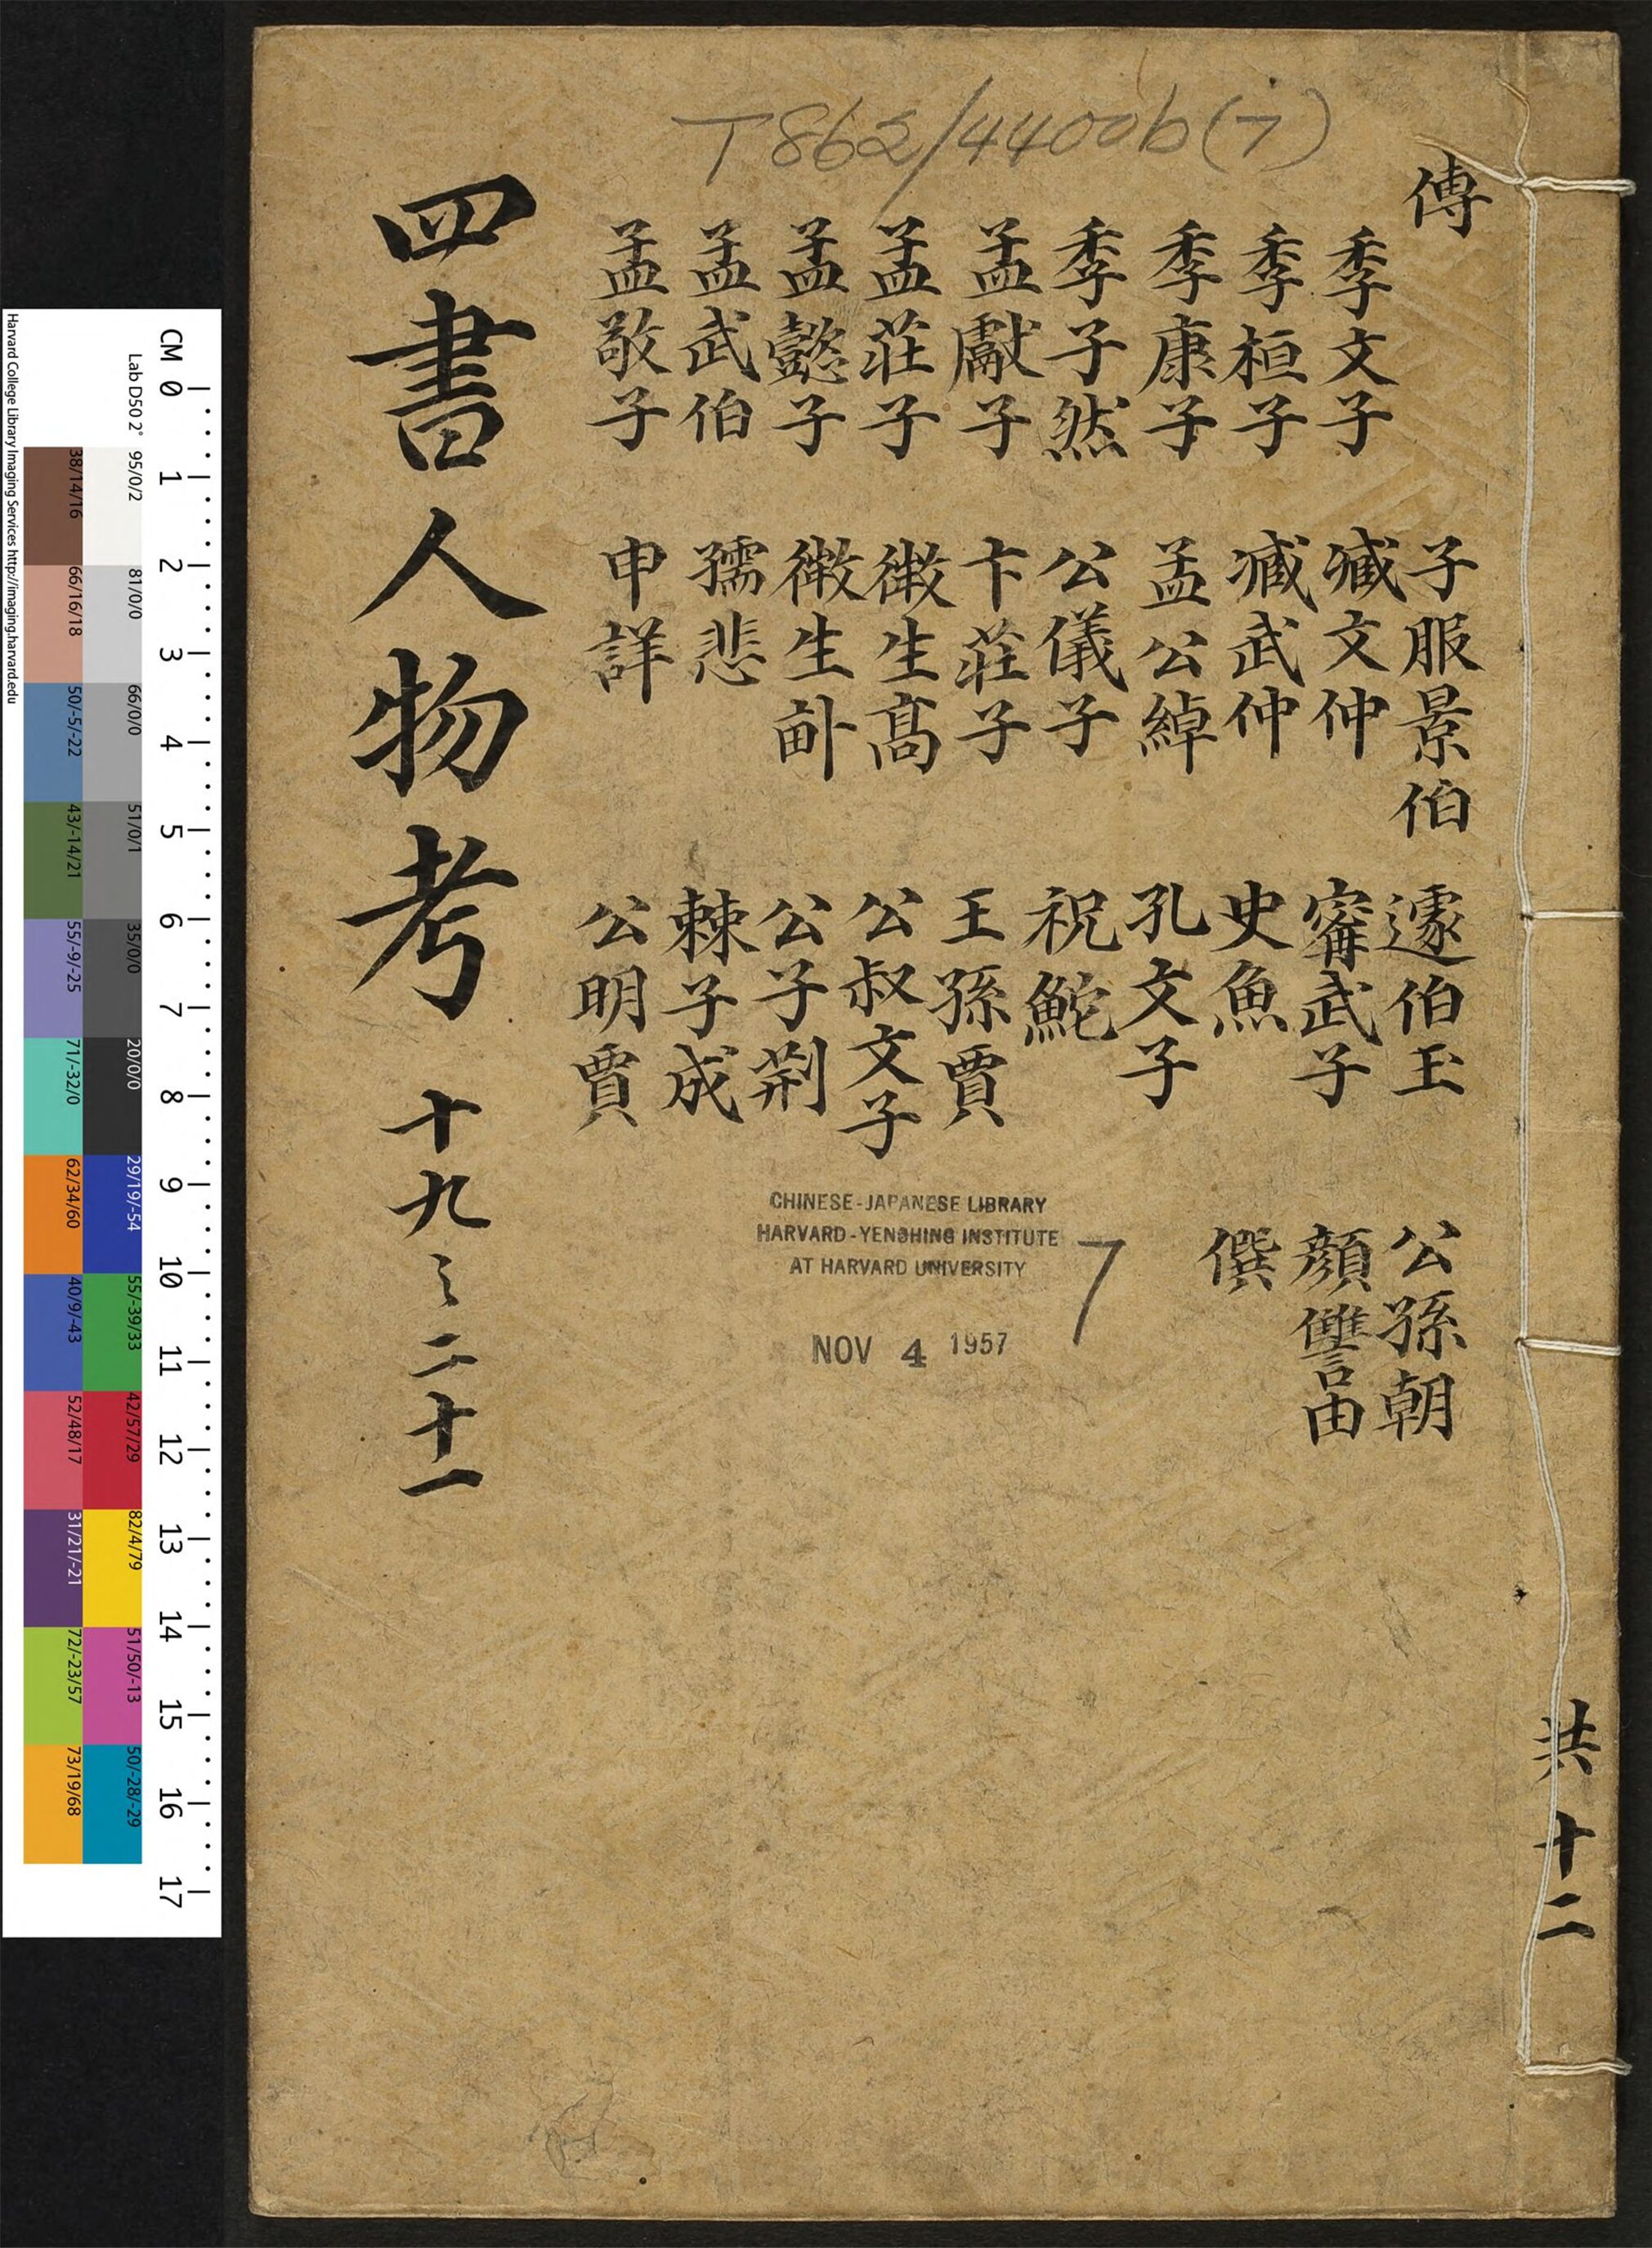 T862/4400b(7)
傳
季文子
季桓子
季康子
季子然
孟獻子
孟莊子
孟懿子
孟武伯
孟敬子
子服景伯
臧文仲
臧武仲
孟公綽
公儀子
卞莊子
微生高
微生畝
孺悲
申詳
蘧伯玉
甯武子
史魚
孔文子
祝鮀
王孫賈
公叔文子
公子荆
棘子成
公明賈
公孫朝
顏讐由
僎
四書人物考 十九之二十一
共十二
CHINESE-JAPANESE LIBRARY
HARVARD-YENCHING INSTITUTE
AT HARVARD UNIVERSITY
7
NOV 4 1957
CM 0 1 2 3 4 5 6 7 8 9 10 11 12 13 14 15 16 17
Lab D50 2°
95/0/2
81/0/0
66/0/0
51/0/1
35/0/0
20/0/0
29/19/-54
55/-39/33
42/57/29
82/4/79
51/50/-13
50/-28/-29
38/14/16
66/16/18
50/-5/-22
43/-14/21
55/-9/-25
71/-32/0
62/34/60
40/9/-43
52/48/17
31/21/-21
72/-23/57
73/19/68
Harvard College Library Imaging Services http://imaging.harvard.edu